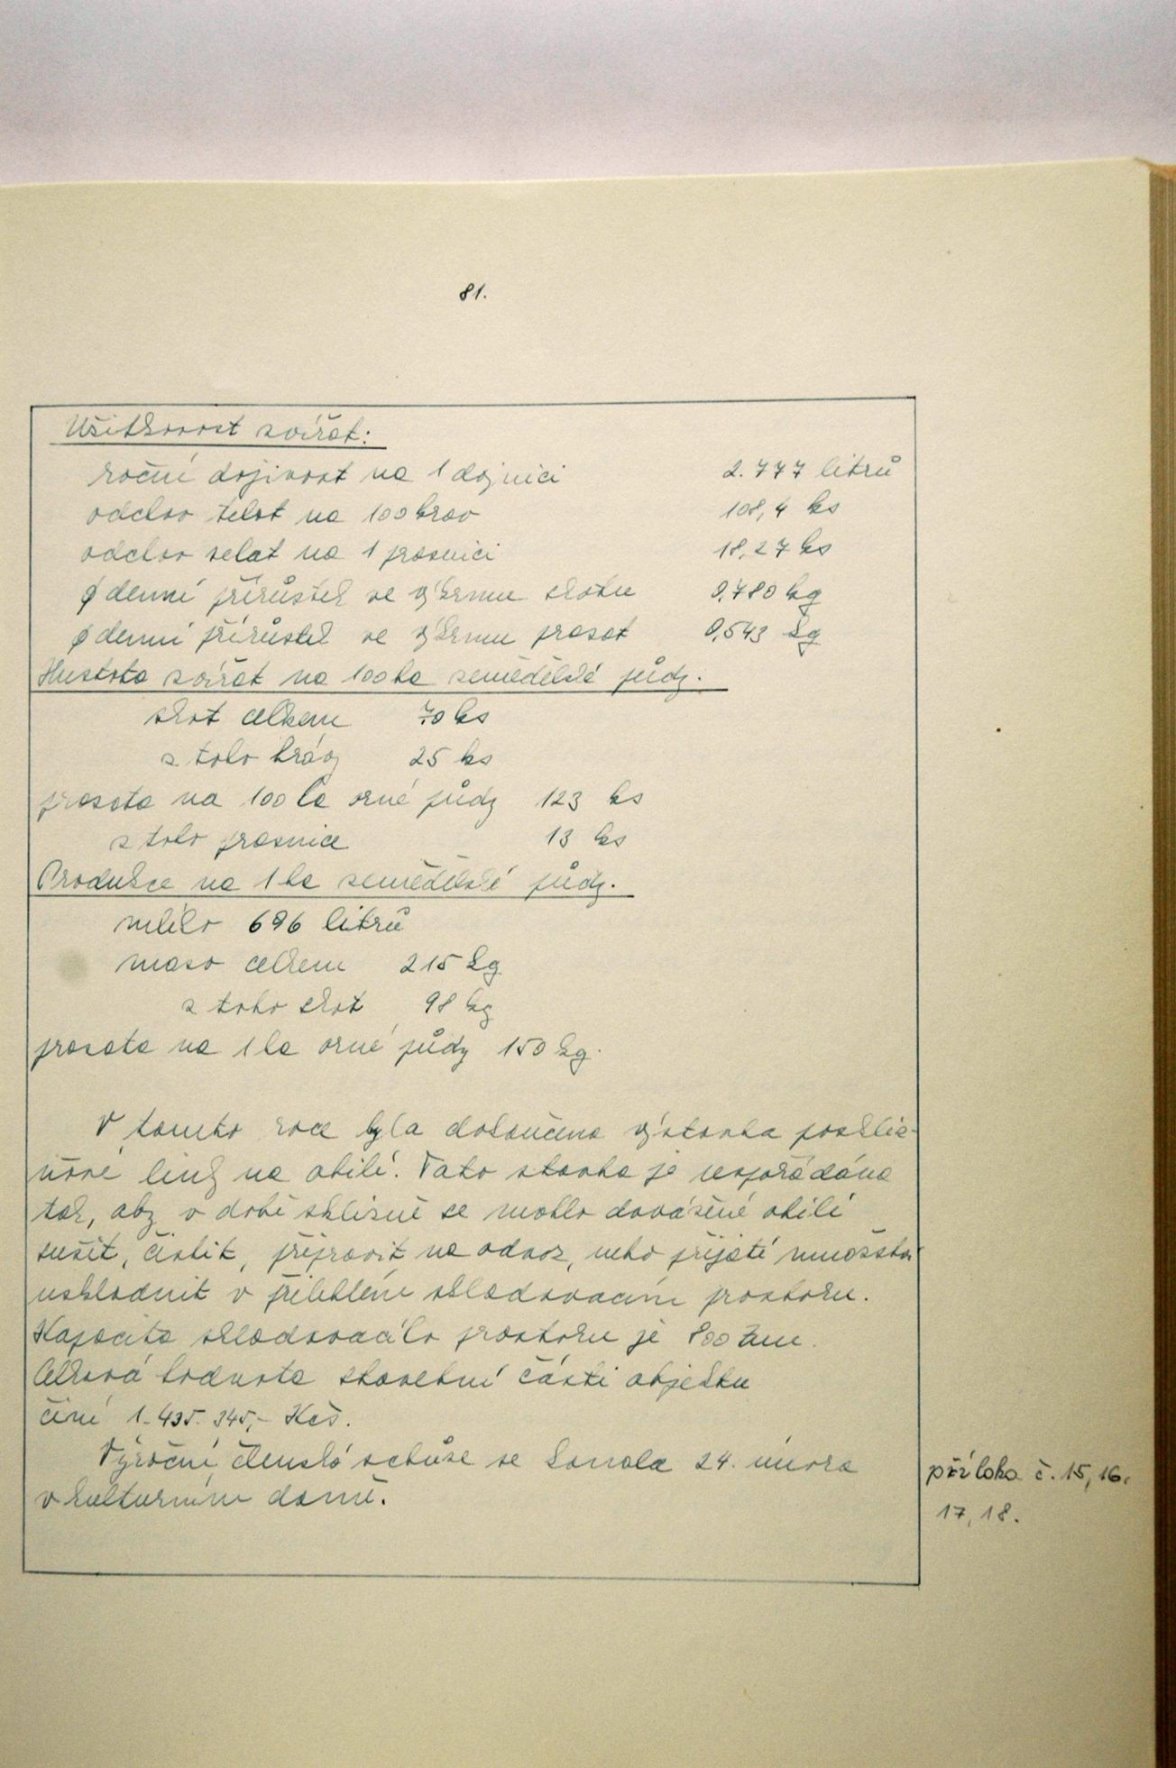 81.
Užitkovost zvířat:
roční dojivost na 1 dojnici 2.777 litrů
odchov telat na 100 krav 108,4 ks
odchov selat na 1 prasnici 18,27 ks
ø denní přírůstek ve výkrmu skotu 0,780 kg
ø denní přírůstek ve výkrmu prasat 0,543 kg
Hustota zvířat na 100 ha zemědělské půdy.
skot celkem 70 ks
z toho krávy 25 ks
prasata na 100 ha orné půdy 123 ks
z toho prasnice 13 ks
Produkce na 1 ha zemědělské půdy.
mléko 696 litrů
maso celkem 215 kg
z toho skot 98 kg
prasata na 1 ha orné půdy 150 kg.
V tomto roce byla dokončena výstavba poskliz-
ňové linky na obilí. Tato stavba je uspořádána
tak, aby v době sklizně se mohlo dovážené obilí
sušit, čistit, připravit na odvoz, nebo přijaté množství
uskladnit v přilehlém skladovacím prostoru.
Kapacita skladovacího prostoru je 800 tun.
Celková hodnota stavební části objektu
činí 1.435.345,- Kčs.
Výroční členská schůze se konala 24. února
v kulturním domě.
příloha č. 15, 16.
17, 18.